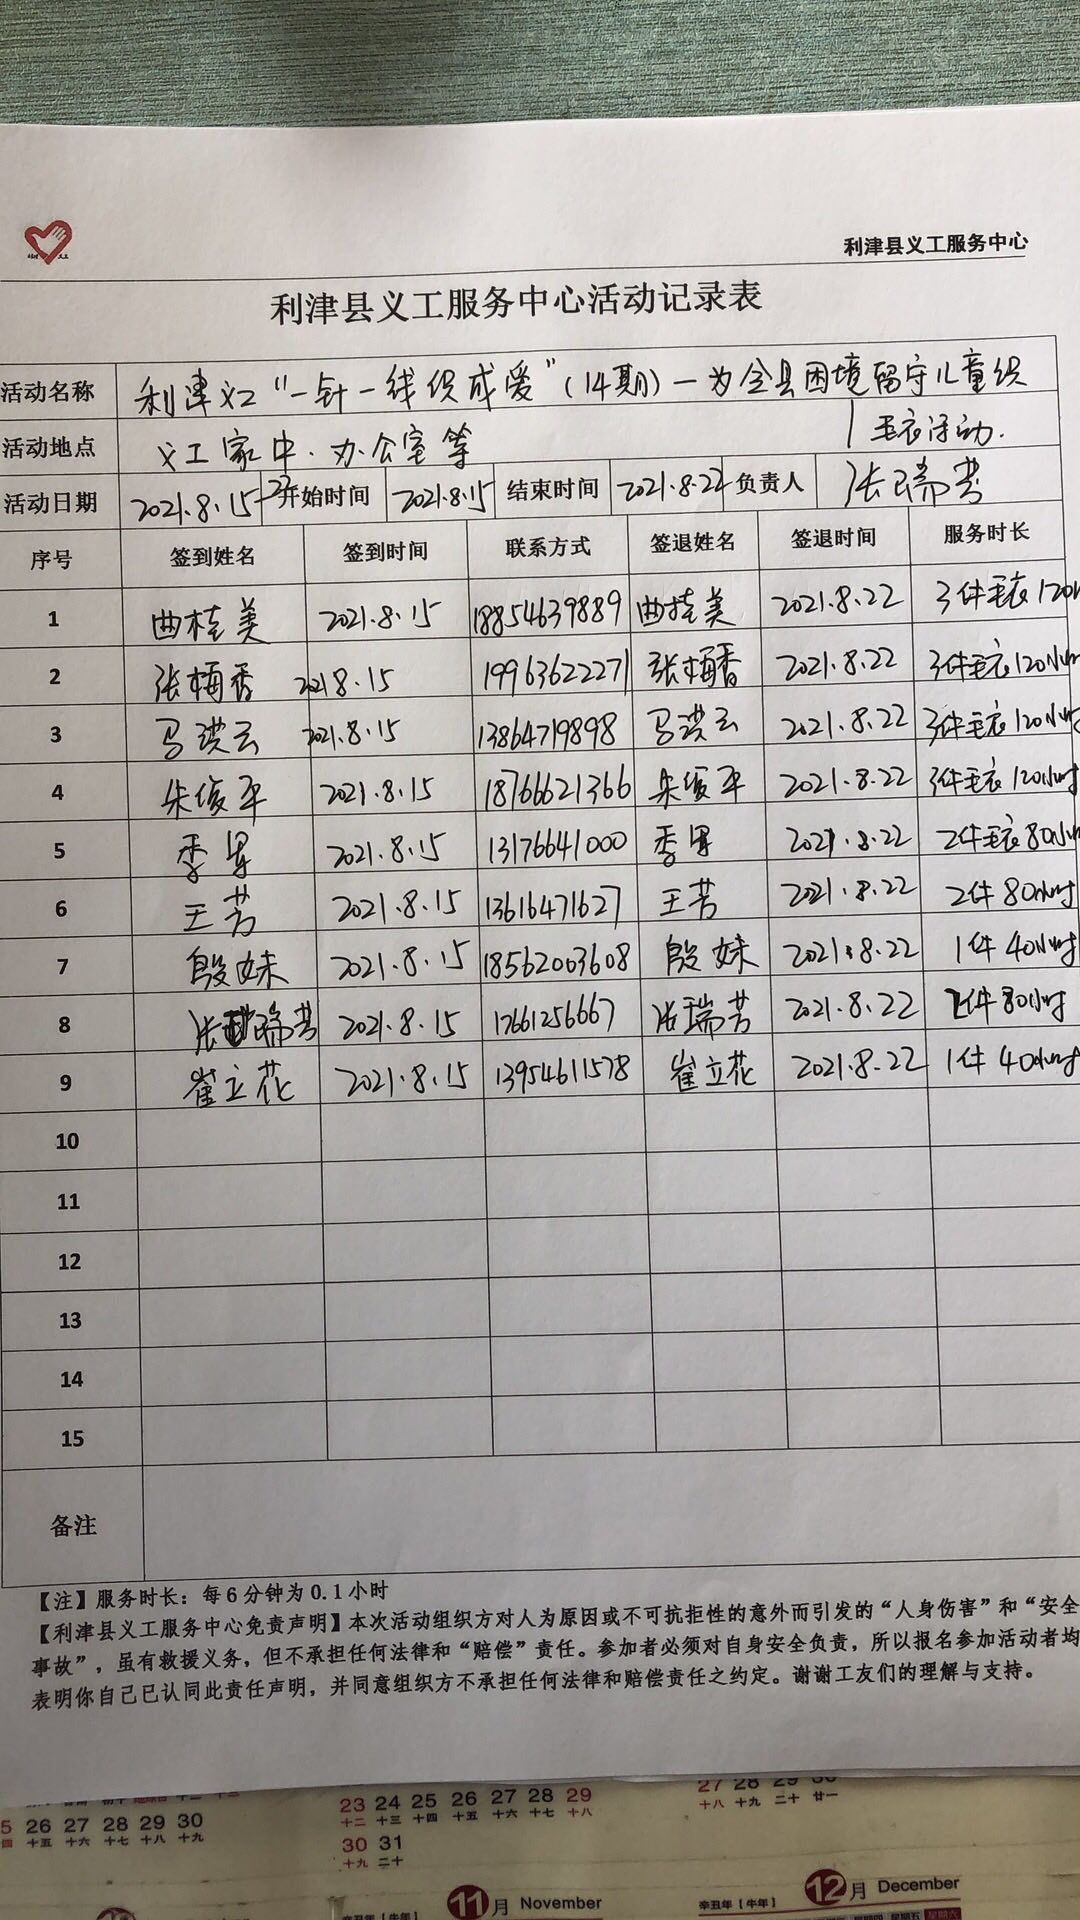 利津县义工服务中心
利津县义工服务中心活动记录表
活动名称 利津义工“一针一线织成爱”(14期)—为全县困境留守儿童织
毛衣活动.
活动地点 义工家中、办公室等
活动日期 2021.8.15-22 开始时间 2021.8.15 结束时间 2021.8.22 负责人 张瑞芳
序号 签到姓名 签到时间 联系方式 签退姓名 签退时间 服务时长
1 曲桂美 2021.8.15 18854639889 曲桂美 2021.8.22 3件毛衣120小
2 张梅香 2021.8.15 19963622271 张梅香 2021.8.22 3件毛衣120小时
3 马洪云 2021.8.15 13864719898 马洪云 2021.8.22 3件毛衣120小时
4 朱俊平 2021.8.15 18766621366 朱俊平 2021.8.22 3件毛衣120小时
5 季 2021.8.15 13176641000 季 2021.8.22 2件毛衣80小时
6 王芳 2021.8.15 13616471627 王芳 2021.8.22 2件 80小时
7 殷妹 2021.8.15 18562003608 殷妹 2021.8.22 1件 40小时
8 张瑞芳 2021.8.15 17661256667 张瑞芳 2021.8.22 2件80小时
9 崔立花 2021.8.15 13954611578 崔立花 2021.8.22 1件 40小时
10
11
12
13
14
15
备注
【注】服务时长：每6分钟为0.1小时
【利津县义工服务中心免责声明】本次活动组织方对人为原因或不可抗拒性的意外而引发的“人身伤害”和“安全
事故”，虽有救援义务，但不承担任何法律和“赔偿”责任。参加者必须对自身安全负责，所以报名参加活动者均
表明你自己已认同此责任声明，并同意组织方不承担任何法律和赔偿责任之约定。谢谢工友们的理解与支持。
27 28 29 30
十八 十九 二十 廿一
23 24 25 26 27 28 29
十二 十三 十四 十五 十六 十七 十八
5 26 27 28 29 30
四 十五 十六 十七 十八 十九
30 31
十九 二十
11月 November
12月 December
辛丑年【牛年】
辛丑年【牛年】